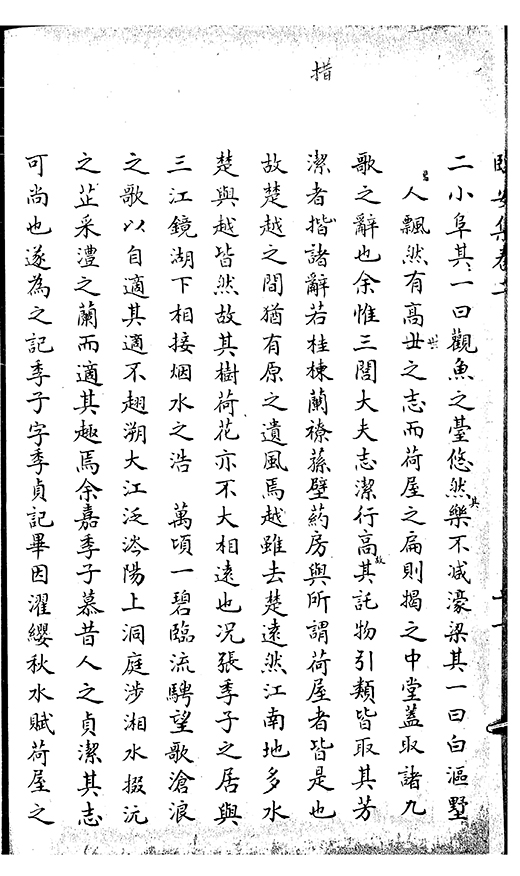 措
二小阜其一曰觀魚之臺悠然樂不减濠梁其一曰白漚墅
人飄然有高世之志而荷屋之扁則揭之中堂蓋取諸九
歌之辭也余惟三閭大夫志潔行高其託物引類皆取其芳
潔者揩諸辭若桂棟蘭橑蓀壁葯房與所謂荷屋者皆是也
故楚越之間猶有原之遺風焉越雖去楚遠然江南地多水
楚與越皆然故其樹荷花亦不大相遠也况張季子之居與
三江鏡湖下相接烟水之浩 萬頃一碧臨流騁望歌滄浪
之歌以自適其適不趐溯大江泛涔陽上洞庭涉湘水掇沅
之芷采澧之蘭而適其趣焉余嘉季子慕昔人之貞潔其志
可尚也遂為之記季子字季貞記畢因濯纓秋水賦荷屋之